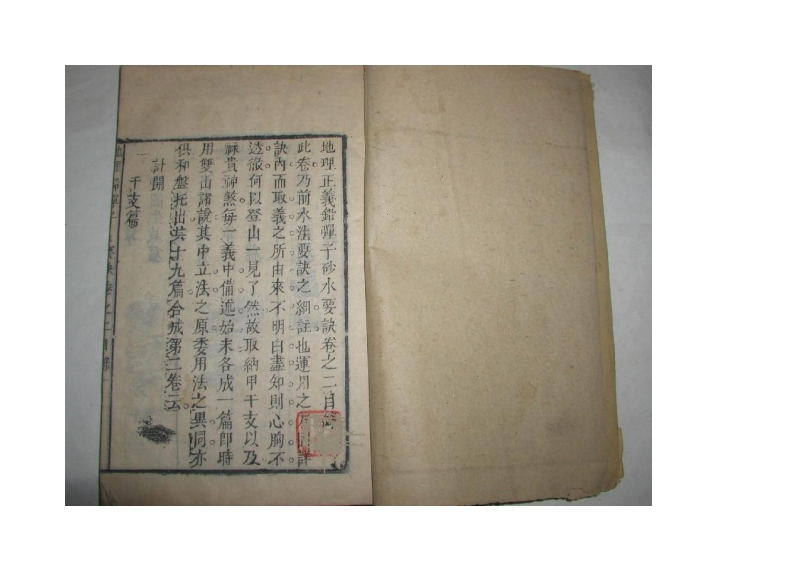 地理正義鉛彈子砂水要訣卷之二目錄
此卷乃前水法要訣之細註也運用之 詳
訣內而取義之所由來不明白盡知則心胸不
透徹何以登山一見了然故取納甲干支以及
祿貴神煞每一義中備述始末各成一篇即時
用雙山諸說其中立法之原委用法之異同亦
俱和盤托出共十九篇合成第二卷云
計開
干支篇